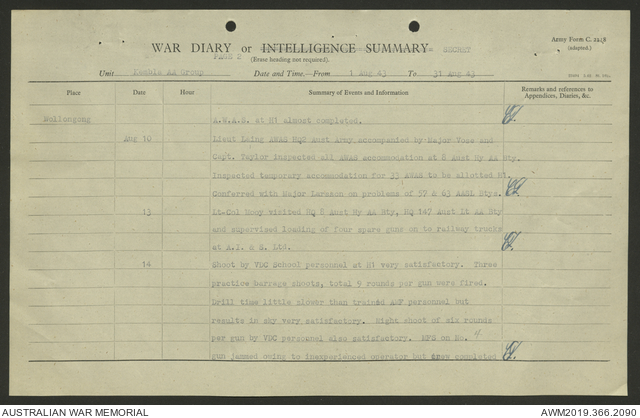 WAR DIARY or INTELLIGENCE SUMMARY SECRET
Army Form C. 2118
(adapted.)
PAGE 2
(Erase heading not required).
Unit Kembla AA Group Date and Time—From 1 Aug 43 To 31 Aug 43
Place Date Hour Summary of Events and Information Remarks and references to
Appendices, Diaries, &c.
Wollongong A.W.A.S. at H1 almost completed.
Aug 10 Lieut Laing AWAS HQ2 Aust Army accompanied by Major Vose and
Capt. Taylor inspected all AWAS accommodation at 8 Aust Hy AA Bty.
Inspected temporary accommodation for 33 AWAS to be allotted H1.
Conferred with Major on problems of 57 & 63 AASL Btys.
13 Lt-Col visited HQ 8 Aust Hy AA Bty, HQ 147 Aust Lt AA Bty
and supervised loading of four spare guns on to railway trucks
at A.I. & S. Ltd.
14 Shoot by VDC School personnel at H1 very satisfactory. Three
practice barrage shoots, total 9 rounds per gun were fired.
Drill time little slower than trained AMF personnel but
results in sky very satisfactory. Night shoot of six rounds
per gun by VDC personnel also satisfactory. on No. 4
gun jammed owing to inexperienced operator but crew completed
AUSTRALIAN WAR MEMORIAL AWM2019.366.2090